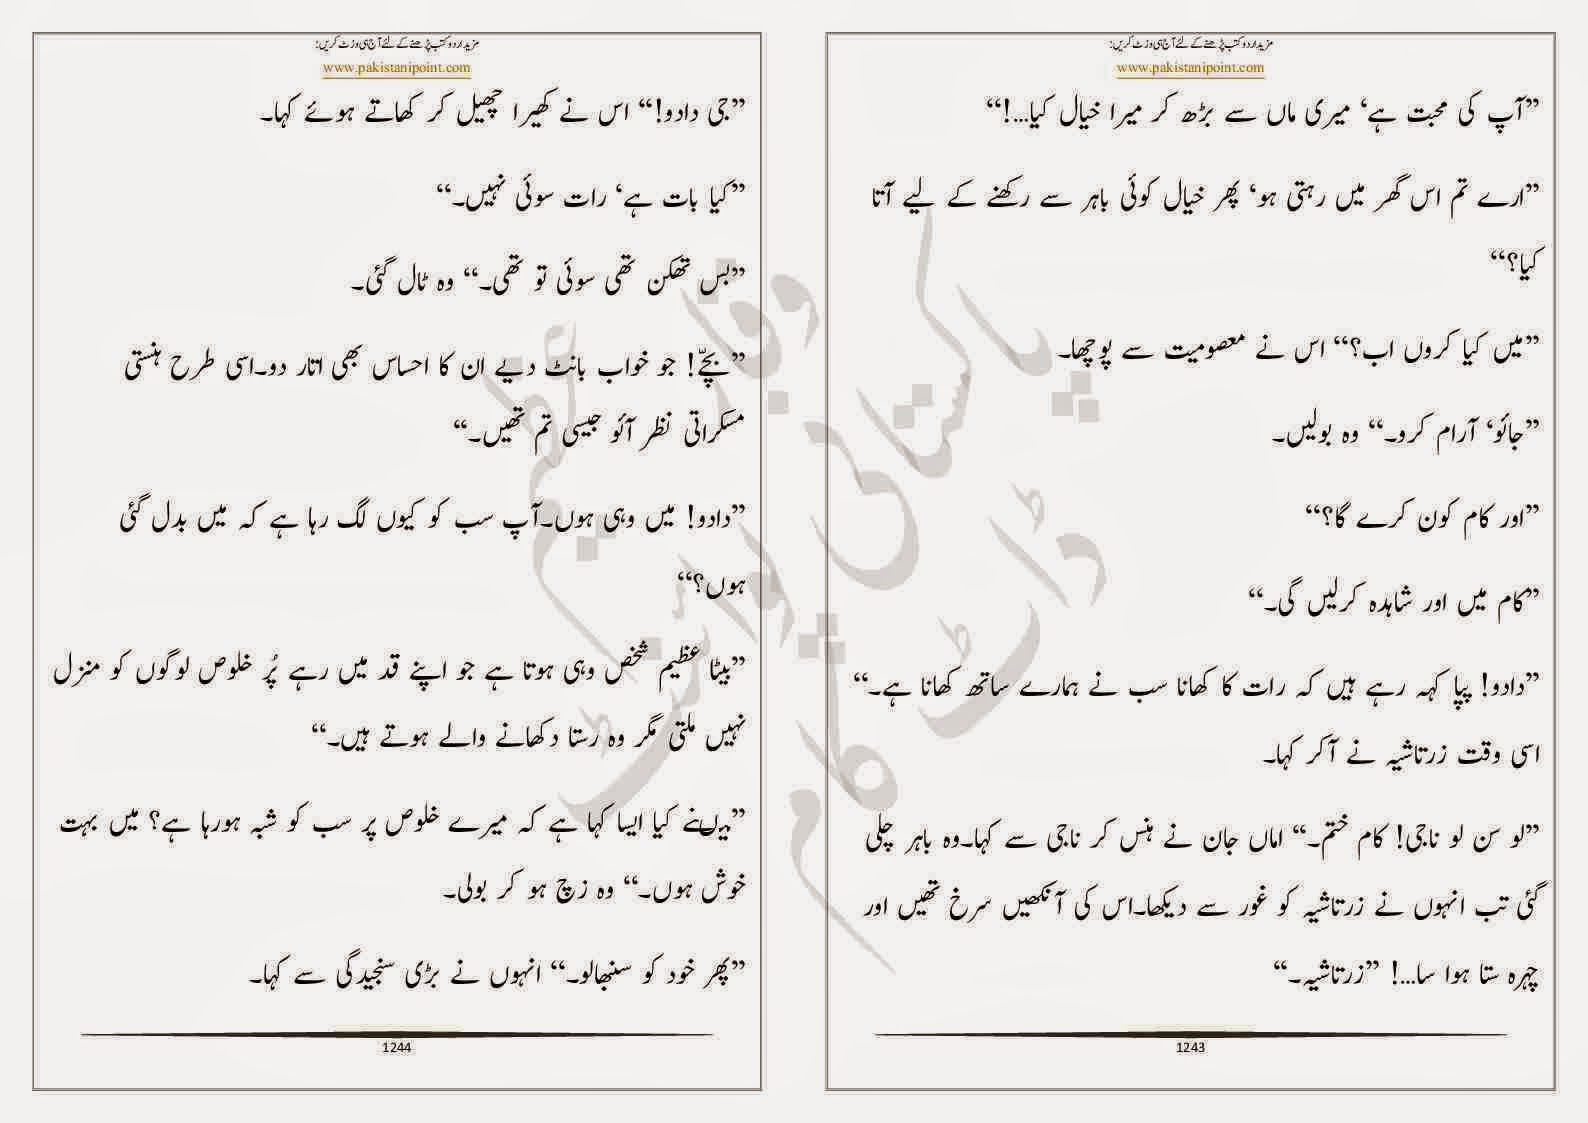 مزید اردو کتب پڑھنے کے لئے آج ہی وزٹ کریں:
www.pakistanipoint.com
”آپ کی محبت ہے‘ میری ماں سے بڑھ کر میرا خیال کیا...!“
”ارے تم اس گھر میں رہتی ہو‘ پھر خیال کوئی باہر سے رکھنے کے لیے آتا
کیا؟“
”میں کیا کروں اب؟“ اس نے معصومیت سے پوچھا۔
”جائو‘ آرام کرو۔“ وہ بولیں۔
”اور کام کون کرے گا؟“
”کام میں اور شاہدہ کرلیں گی۔“
”دادو! پپا کہہ رہے ہیں کہ رات کا کھانا سب نے ہمارے ساتھ کھانا ہے۔“
اسی وقت زرتاشیہ نے آکر کہا۔
”لو سن لو ناجی! کام ختم۔“ اماں جان نے ہنس کر ناجی سے کہا۔وہ باہر چلی
گئی تب انہوں نے زرتاشیہ کو غور سے دیکھا۔اس کی آنکھیں سرخ تھیں اور
چہرہ ستا ہوا سا...! ”زرتاشیہ۔“
1243
مزید اردو کتب پڑھنے کے لئے آج ہی وزٹ کریں:
www.pakistanipoint.com
”جی دادو!“ اس نے کھیرا چھیل کر کھاتے ہوئے کہا۔
”کیا بات ہے‘ رات سوئی نہیں۔“
”بس تھکن تھی سوئی تو تھی۔“ وہ ٹال گئی۔
”بچّے! جو خواب بانٹ دیے ان کا احساس بھی اتار دو۔اسی طرح ہنستی
مسکراتی نظر آئو جیسی تم تھیں۔“
”دادو! میں وہی ہوں۔آپ سب کو کیوں لگ رہا ہے کہ میں بدل گئی
ہوں؟“
”بیٹا عظیم شخص وہی ہوتا ہے جو اپنے قد میں رہے پُر خلوص لوگوں کو منزل
نہیں ملتی مگر وہ رستا دکھانے والے ہوتے ہیں۔“
”میں نے کیا ایسا کہا ہے کہ میرے خلوص پر سب کو شبہ ہورہا ہے؟ میں بہت
خوش ہوں۔“ وہ زچ ہو کر بولی۔
”پھر خود کو سنبھالو۔“ انہوں نے بڑی سنجیدگی سے کہا۔
1244
وقار عظیم
پاکستانی پوائنٹ
ڈاٹ کام